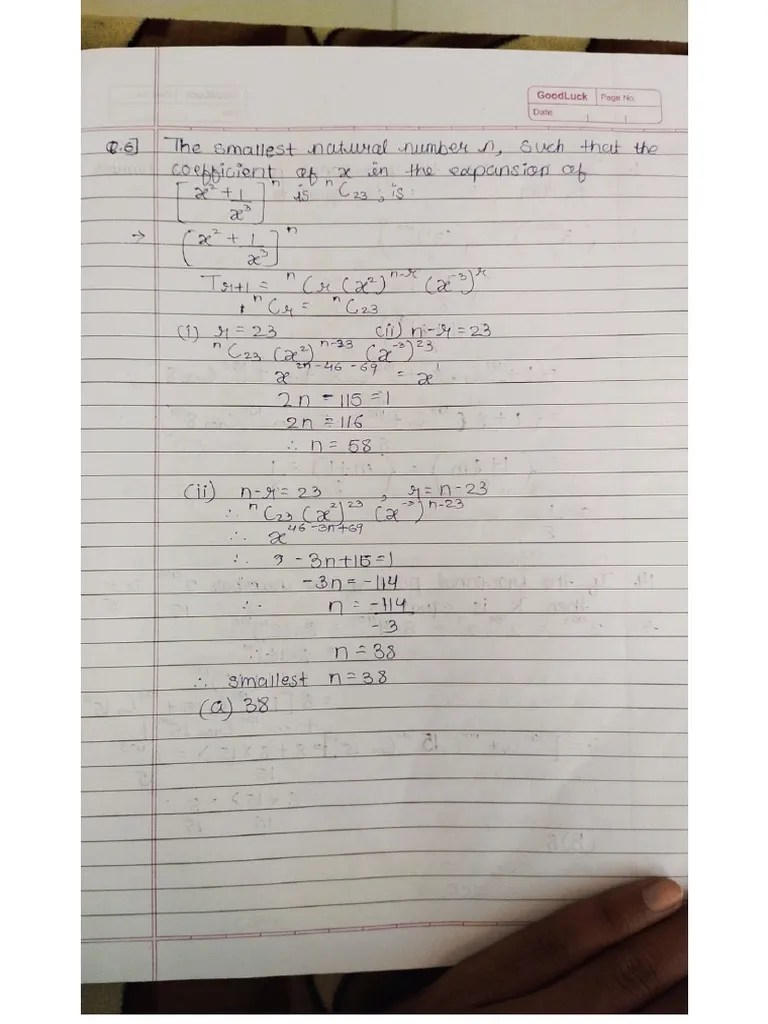 GoodLuck Page No.
Date
Q.6] The smallest natural number n, such that the
coefficient of x in the expansion of
[x² + 1/x³]ⁿ is ⁿC₂₃, is
→ [x² + 1/x³]ⁿ
Tᵣ₊₁ = ⁿCᵣ (x²)ⁿ⁻ʳ (x⁻³)ʳ
ⁿCᵣ = ⁿC₂₃
(i) r = 23 (ii) n-r = 23
ⁿC₂₃ (x²)ⁿ⁻³³ (x⁻³)²³
x²ⁿ⁻⁴⁶⁻⁶⁹ = x¹
2n - 115 = 1
2n = 116
∴ n = 58
(ii) n-r = 23 , r = n-23
∴ ⁿC₂₃ (x²)²³ (x⁻³)ⁿ⁻²³
∴ x⁴⁶⁻³ⁿ⁺⁶⁹
∴ -3n+115 = 1
-3n = -114
∴ n = -114/-3
n = 38
∴ smallest n = 38
(a) 38